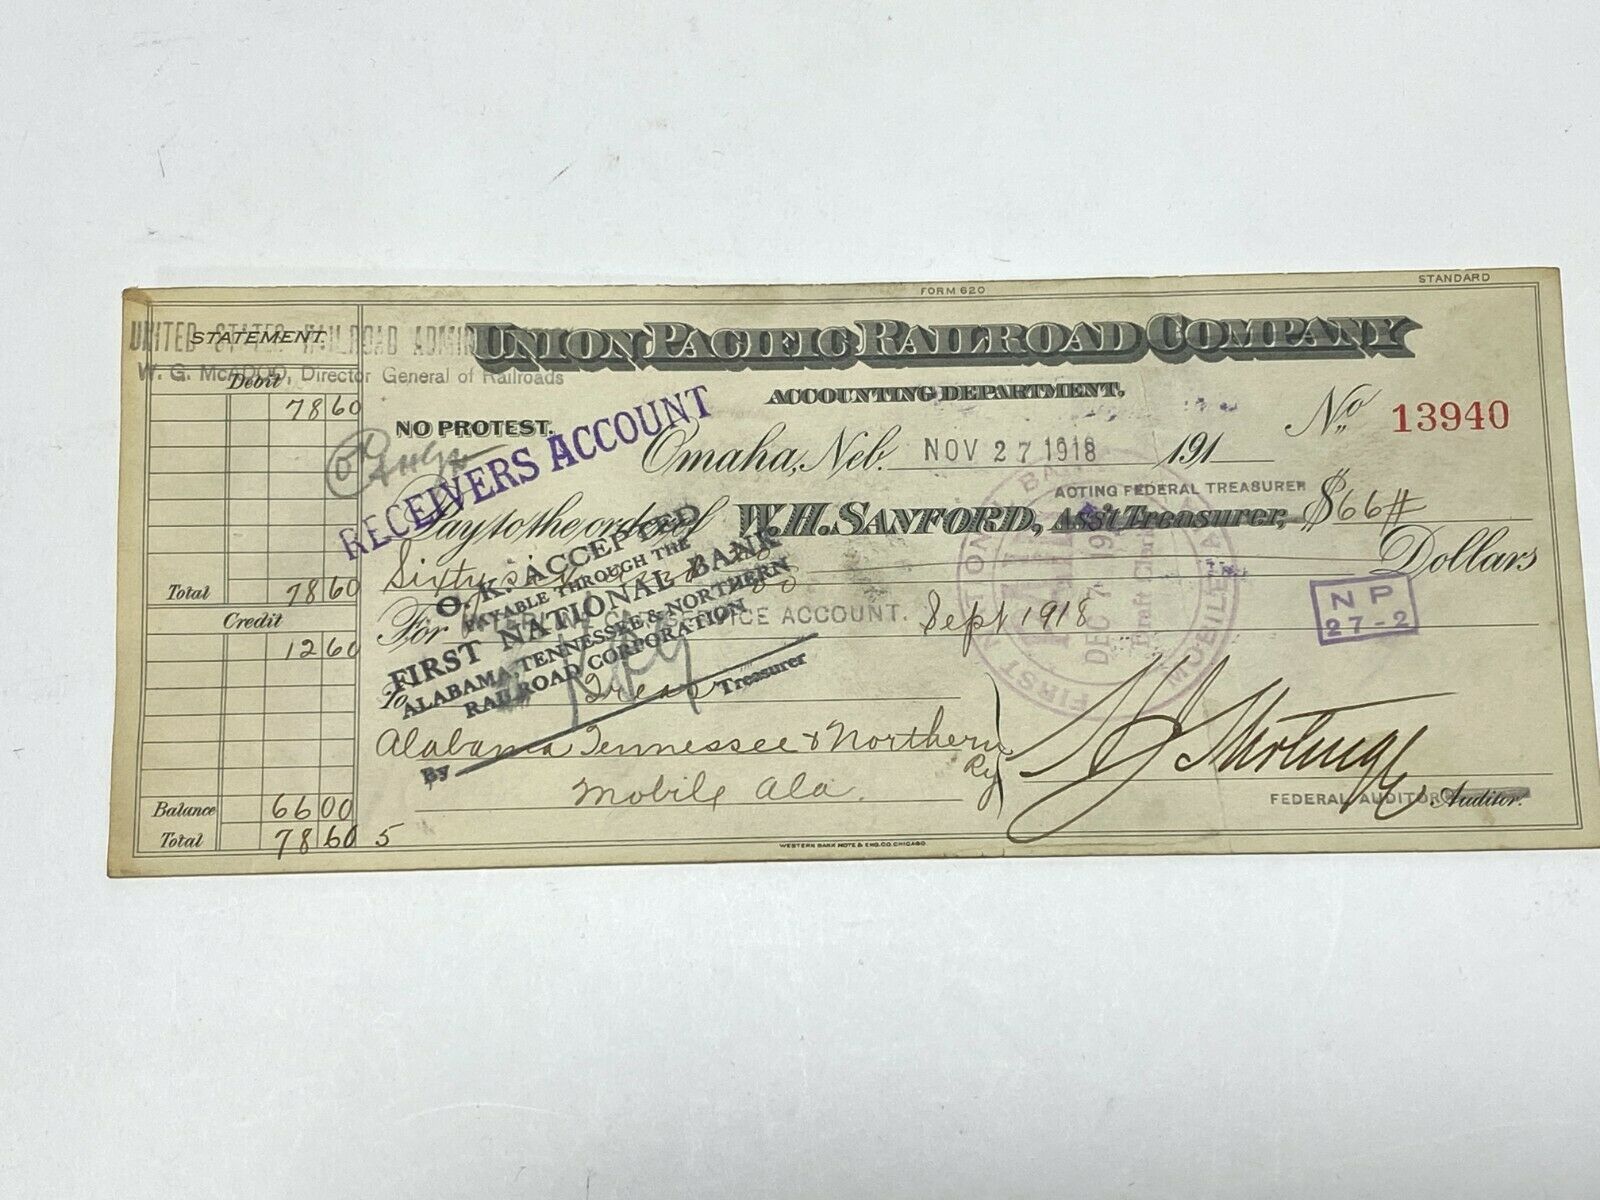 FORM 620
STANDARD
UNITED STATES RAILROAD ADMIN
STATEMENT.
W. G. McADOO, Director General of Railroads
UNION PACIFIC RAILROAD COMPANY
ACCOUNTING DEPARTMENT,
Debit
78 60
NO PROTEST.
OK
RECEIVERS ACCOUNT
Omaha, Neb. NOV 27 1918 191
No. 13940
ACTING FEDERAL TREASURER
Pay to the order of W. H. SANFORD, Ass't Treasurer, $66
Sixty six
Dollars
Total 78 60
For SERVICE ACCOUNT. Sept 1918
O. K. ACCEPTED
PAYABLE THROUGH THE
FIRST NATIONAL BANK
ALABAMA, TENNESSEE & NORTHERN
RAILROAD CORPORATION
Treasurer
By
FIRST NATIONAL BANK
MOBILE, ALA
PAID
DEC 7 191
Draft Clerk
N P
27-2
Credit
12 60
To Treas
Alabama Tennessee & Northern
Ry
Mobile Ala.
FEDERAL AUDITOR Auditor.
Balance 66 00
Total 78 60 5
WESTERN BANK NOTE & ENG. CO. CHICAGO